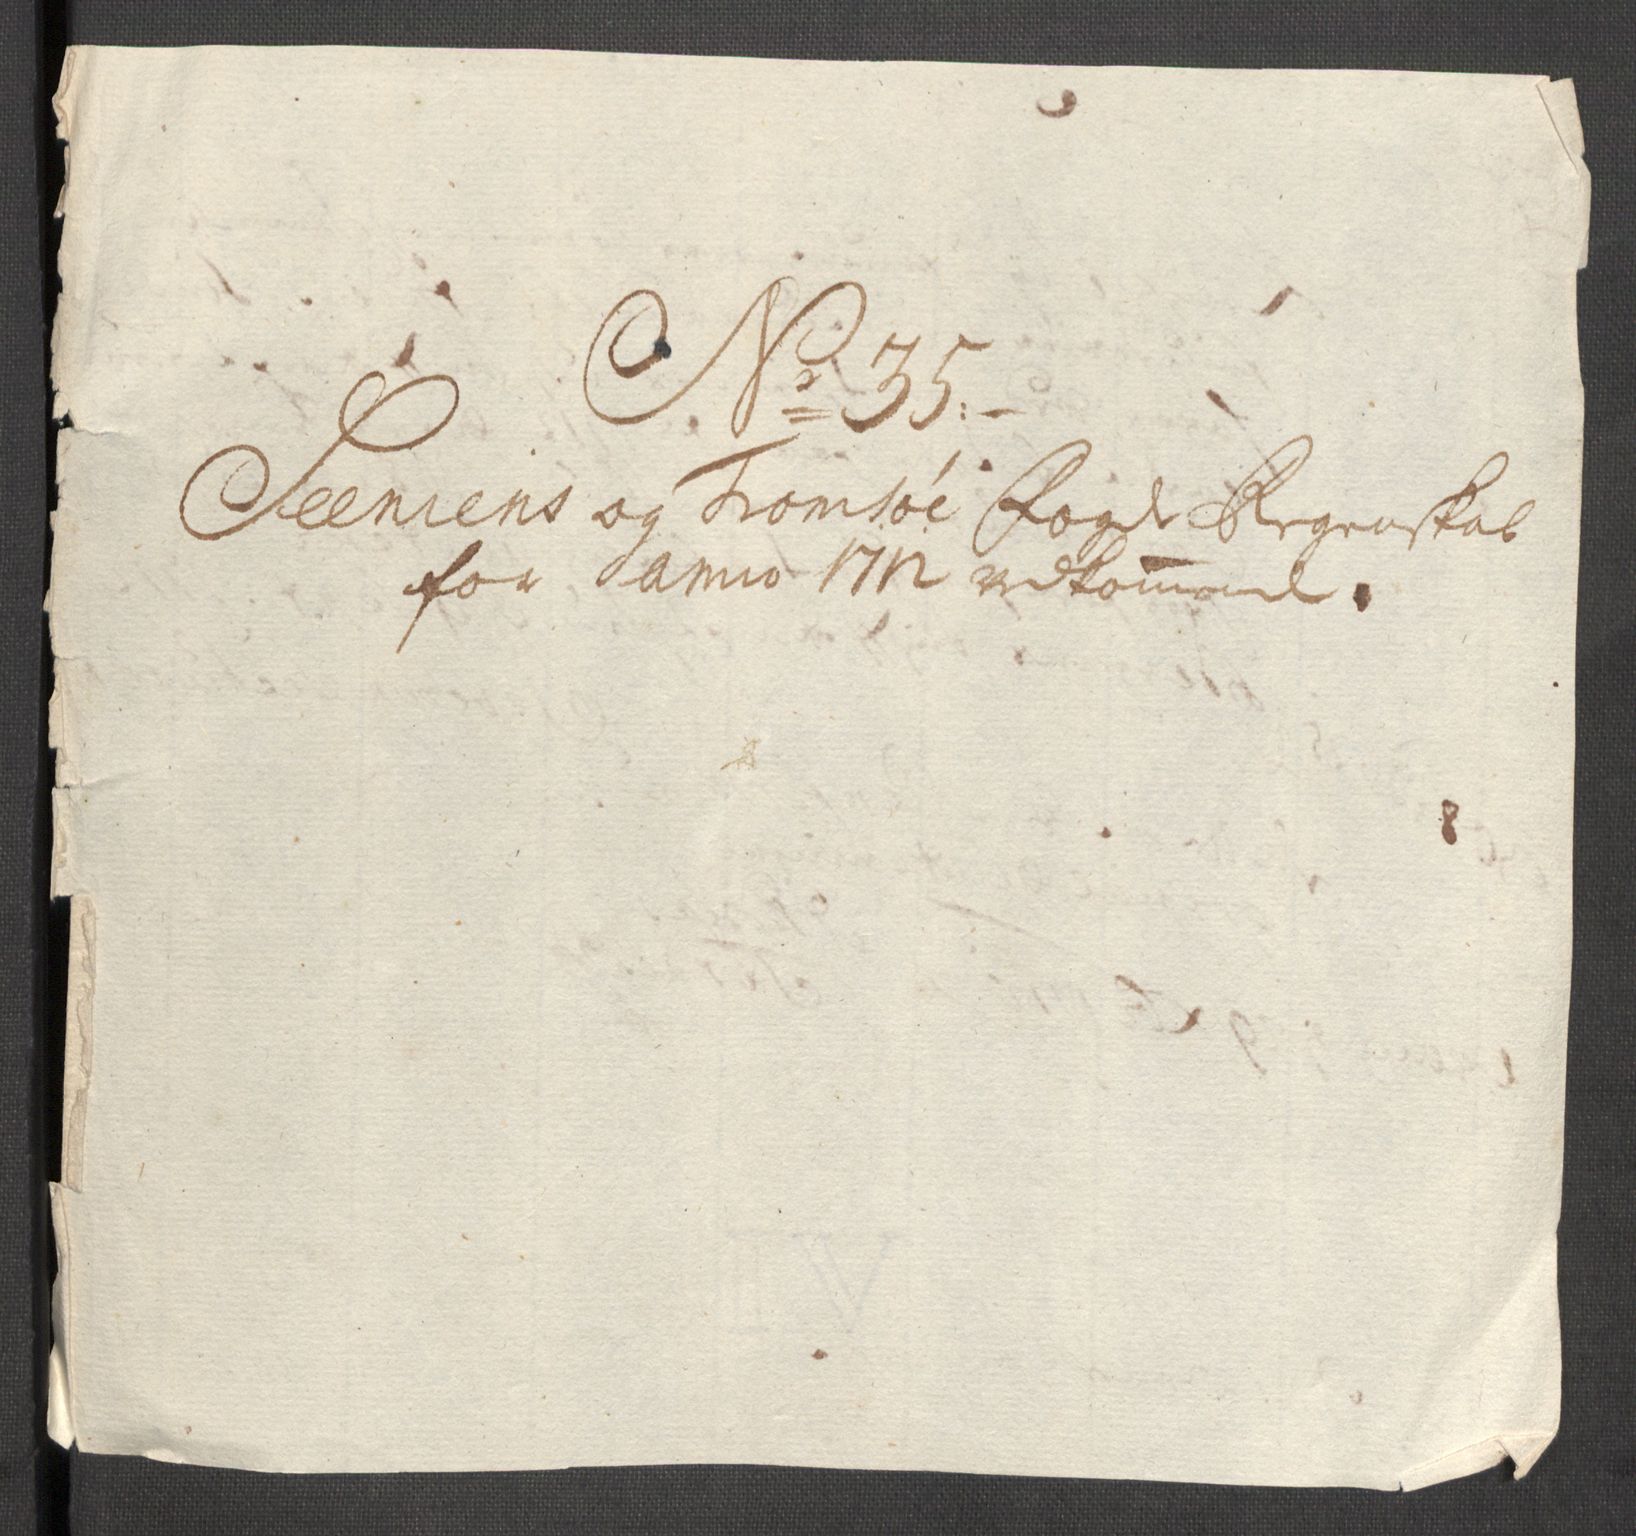 No 35:-
Seeniens og Tromsöe Fogd Regenskab
for anno 1712 vedkommend.